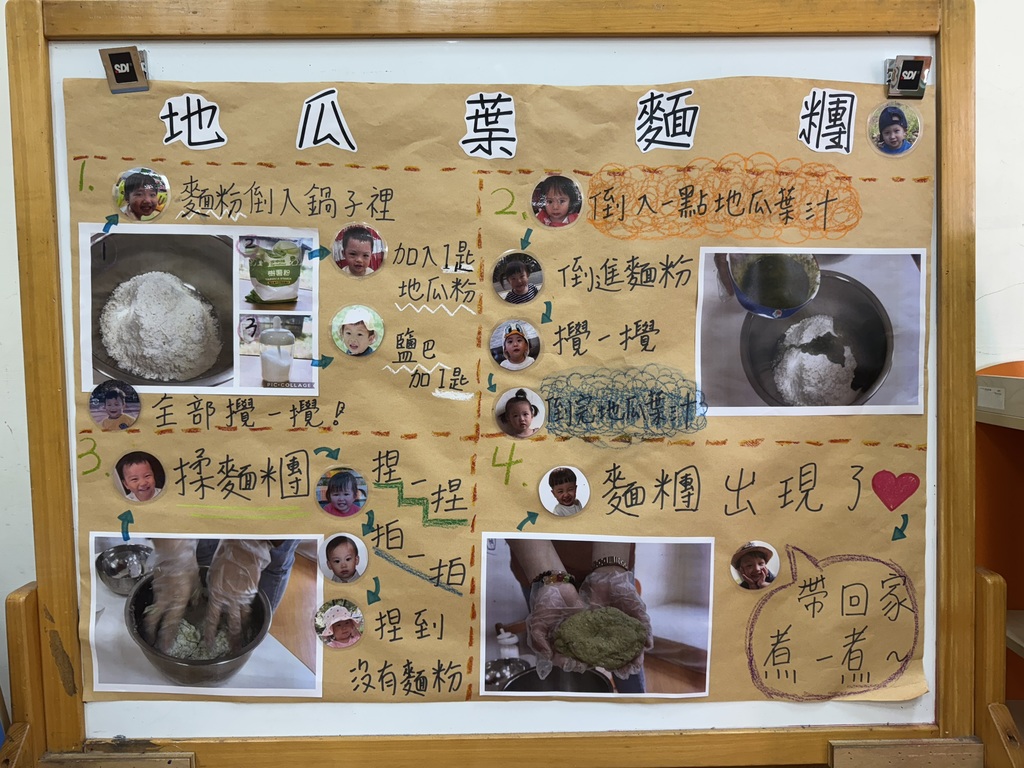 SDI
SDI
地瓜葉麵糰
1.
麵粉倒入鍋子裡
1
2
3
樹薯粉
PIC·COLLAGE
加入1匙
地瓜粉
鹽巴
加1匙
全部攪一攪!
2.
倒入一點地瓜葉汁
倒進麵粉
攪一攪
倒完地瓜葉汁
3.
揉麵糰
捏一捏
拍一拍
捏到
沒有麵粉
4.
麵糰出現了
帶回家
煮一煮~